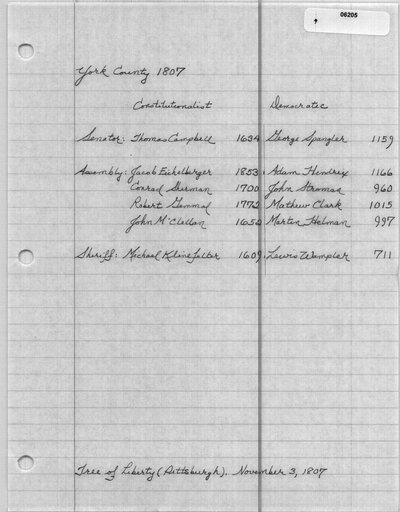 06205
York County 1807
Constitutionalist Democratic
Senator: Thomas Campbell 1634 George Spangler 1159
Assembly: Jacob Eichelberger 1853 Adam Hendrix 1166
Conrad Sherman 1700 John Stroman 960
Robert Gemmal 1772 Mathew Clark 1015
John McClellan 1650 Martin Heiman 997
Sheriff: Michael Klinefelter 1609 Lewis Wampler 711
Tree of Liberty (Pittsburgh). November 3, 1807